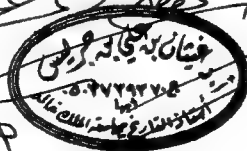 غيثان بن علي بن جريس
ج ٠٥٠٣٧٢٩٢٧٠
أبها
أستاذ التاريخ بجامعة الملك خالد